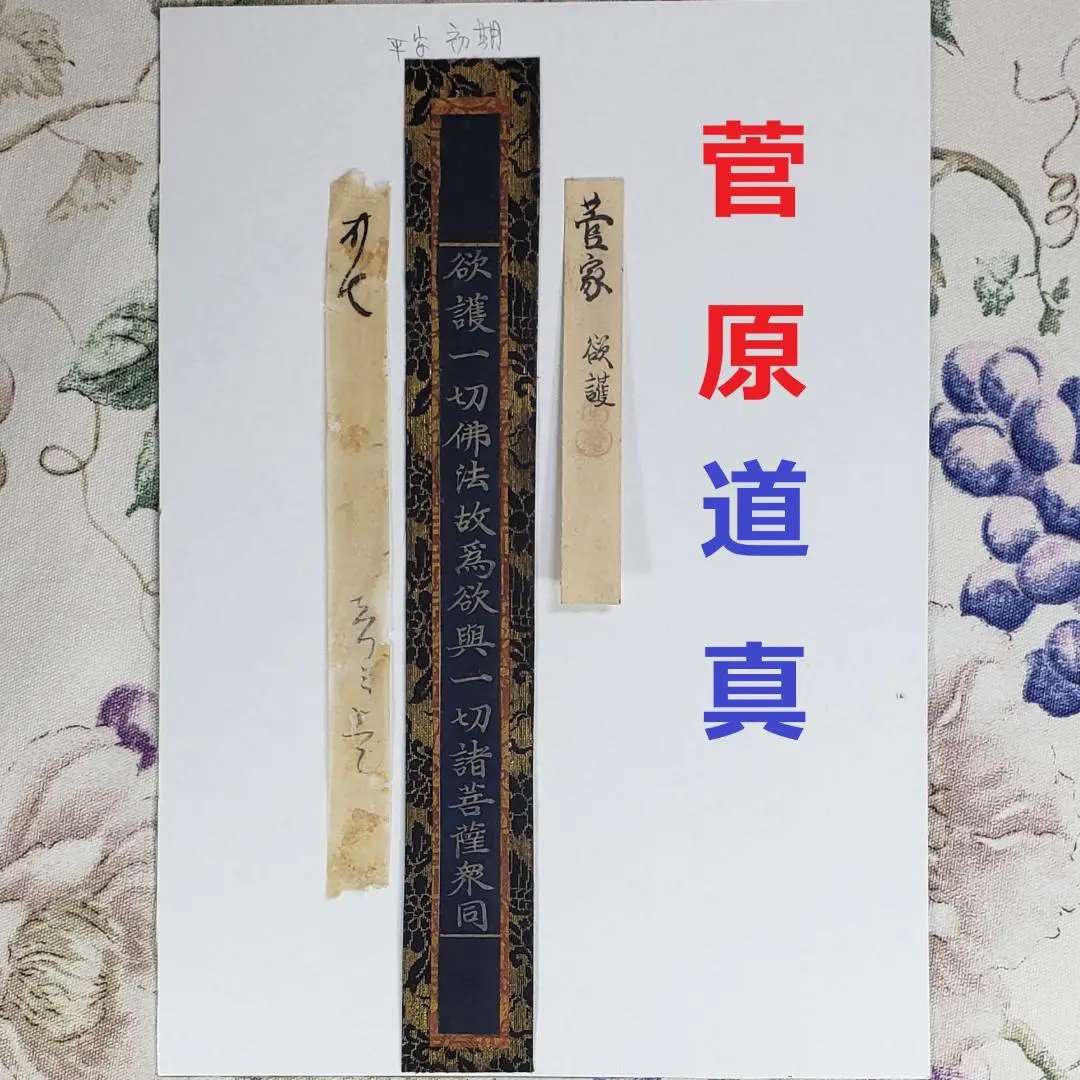 平安初期
菅原道真
菅家 欲護
欲護一切佛法故爲欲與一切諸菩薩衆同